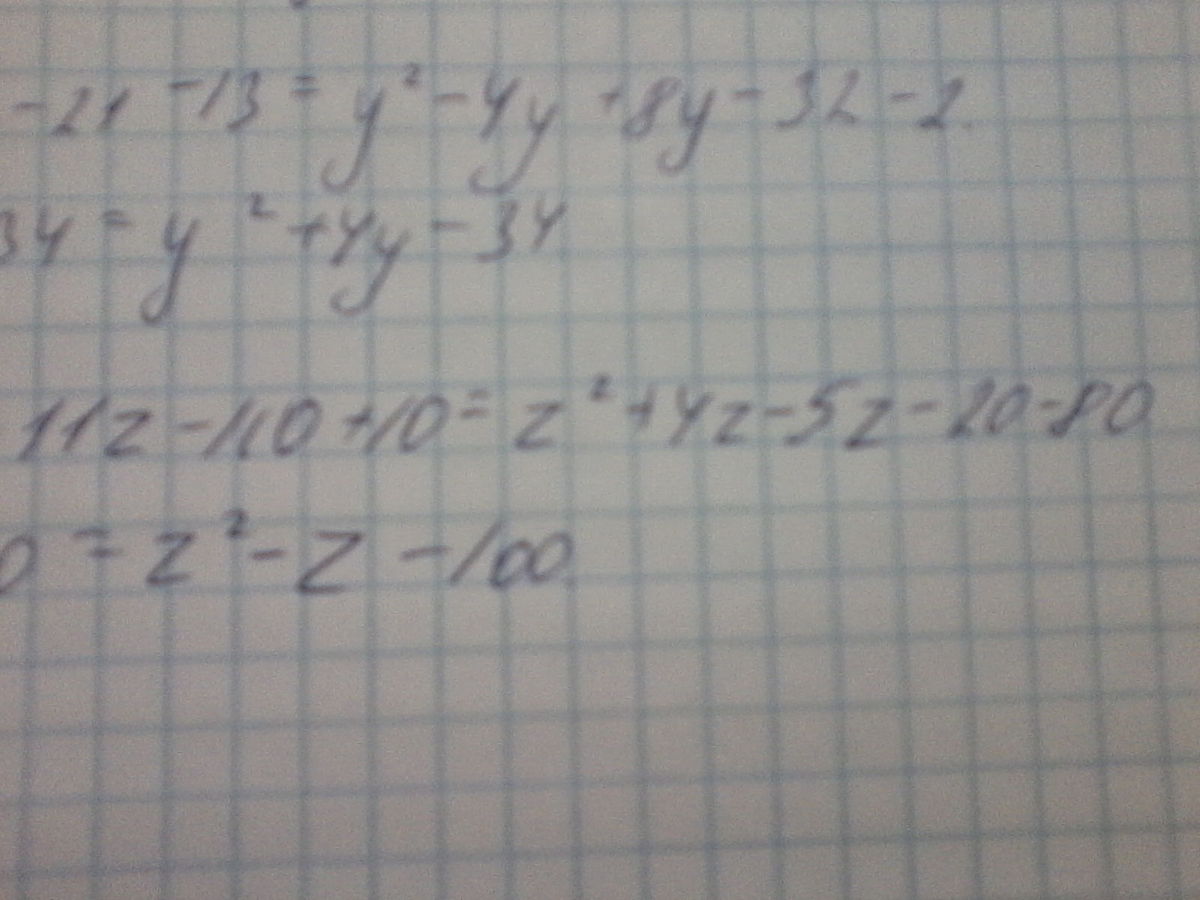 -21 -13 = y² - 4y + 8y - 32 - 2.
34 = y² + 4y - 34
11z - 110 + 10 = z² + 4z - 5z - 20 - 80
0 = z² - z - 100